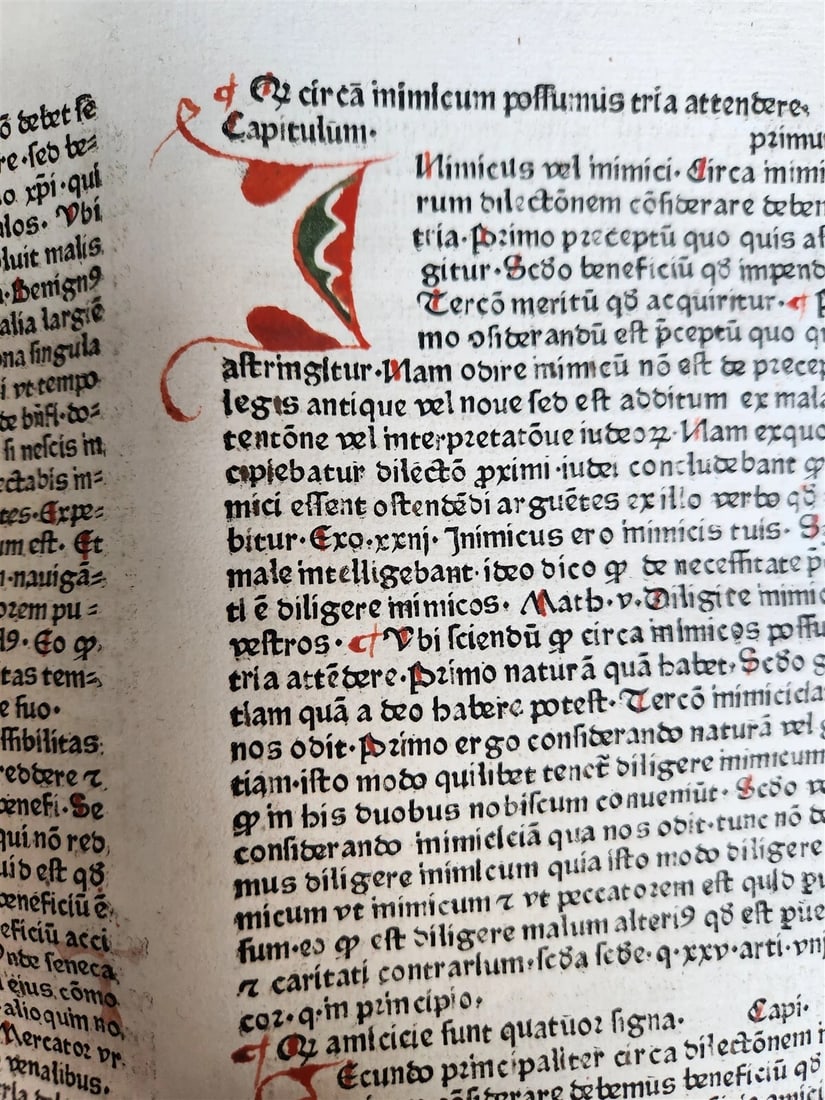 ō debet sē
re·sed be⸗
o xp̄i·qui
alos· Vbi
luit malis
Benign⁹
alia largiē
na singula
i vt tempo
de bn̄fi·do⸗
si nescis in
ectabis in⸗
tes·Expe⸗
um est· Et
nauigā⸗
orem pu⸗
Eo ꝙ
tas tem⸗
e suo·
ssibilitas
reddere ⁊
benefi·Se
qui nō red
uid est qd̄
beneficiū ē
eficiū acci
nde seneca
eius cōmo
alioquim no
Mercator vr
venalibus·
¶ Qꝛ circā inimicum possumus tria attendere·
Capitulum·
primu
INimicus vel inimici· Circa inimi
rum dilectōnem cōsiderare deben
tria·Primo preceptū quo quis as
gitur·Scd̄o beneficiū qd̄ impend
Tercō meritū qd̄ acquiritur·¶ P
mo ꝯsiderandū est p̄ceptū quo qu
astringitur·Nam odire inimicū nō est de precep
legis antique vel noue sed est additum ex mala
tentōne vel interpretatōne iudeoꝝ· Nam exquo
cipiebatur dilectō ꝓximi·iudei concludebant ꝙ
mici essent ostendēdi arguētes ex illo verbo qd̄
bitur·Exo·xxiij· Inimicus ero inimicis tuis· S
male intelligebant·ideo dico ꝙ de necessitate p̄
ti ē diligere inimicos· Math·v·Diligite inimic
vestros·¶Vbi sciendū ꝙ circa inimicos possu
tria attēdere·Primo naturā quā habet·Scd̄o g
tiam quā a deo habere potest·Tercō inimicicia
nos odit·Primo ergo considerando naturā vel g
tiam·isto modo quilibet tenet̄ diligere inimicum
ꝙ in his duobus nobiscum conueniūt· Scd̄o v
considerando inimiciciā qua nos odit·tunc nō d
mus diligere inimicum quia isto modo diligere
micum vt inimicum ⁊ vt peccatorem est quid ꝑu
sum·eo ꝙ est diligere malum alteri⁹ qd̄ est ꝑue
⁊ caritati contrarium·scd̄a scd̄e·q·xxv·arti·vnj
cor·q·in principio·
¶ Qꝛ amicicie sunt quatuor signa· Capi·
SEcundo principaliter circa dilectōnem i
cōsiderare debemus beneficiū qd̄